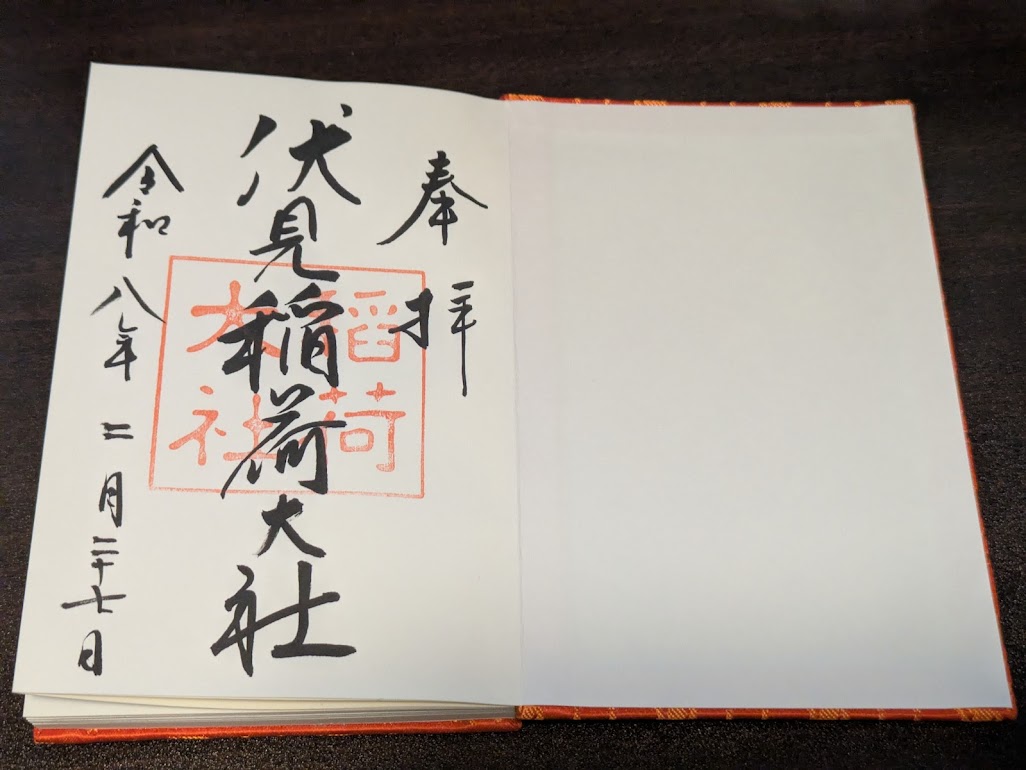 奉拝
伏見稲荷大社
稲荷
大社
令和八年二月二十七日